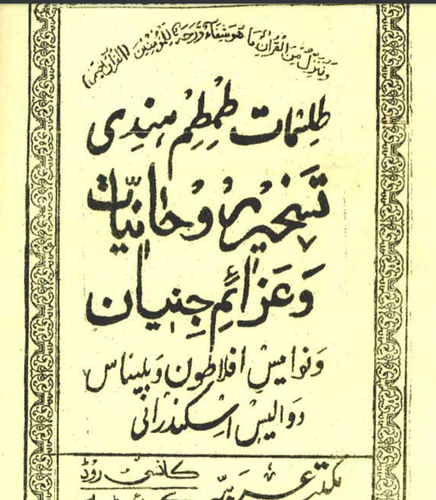 وننزل من القرآن ما هو شفاء ورحمة للمؤمنين (القرآن
طلسمات طمطم ہندی
تسخیر روحانیات
وَعزائمِ جِنیان
ونوامیس افلاطون و بلیناس
و والیس اسکندرانی
مکتبہ
کانسی روڈ